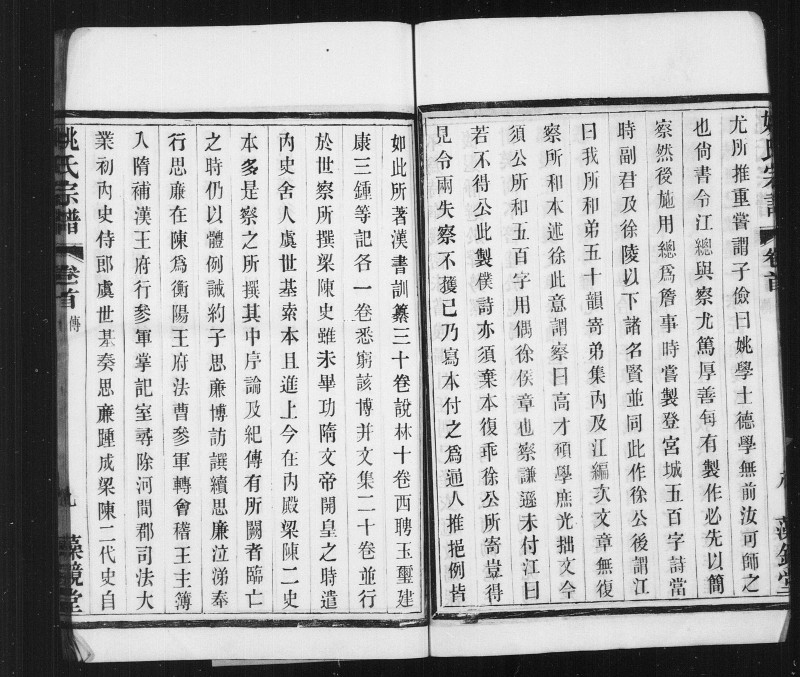 尤所推重嘗謂子儉曰姚學士德學無前汝可師之
也尙書令江總與察尤篤厚善每有製作必先以簡
察然後施用總爲詹事時嘗製登宮城五百字詩當
時副君及徐陵以下諸名賢並同此作徐公後謂江
曰我所和弟五十韻寄弟集內及江編次文章無復
察所和本述徐此意謂察曰高才碩學庶光拙文今
須公所和五百字用偶徐侯章也察謙遜未付江曰
若不得公此製僕詩亦須棄本復乖徐公所寄豈得
見令兩失察不獲已乃寫本付之爲通人推挹例皆
如此所著漢書訓纂三十卷說林十卷西聘玉璽建
康三鍾等記各一卷悉窮該博并文集二十卷並行
於世察所撰梁陳史雖未畢功隋文帝開皇之時遣
內史舍人虞世基索本且進上今在內殿梁陳二史
本多是察之所撰其中序論及紀傳有所闕者臨亡
之時仍以體例誡約子思廉博訪譔續思廉泣涕奉
行思廉在陳爲衡陽王府法曹參軍轉會稽王主簿
入隋補漢王府行參軍掌記室尋除河間郡司法大
業初內史侍郎虞世基奏思廉踵成梁陳二代史自
姚氏宗譜
卷首
傳
九
藻鏡堂